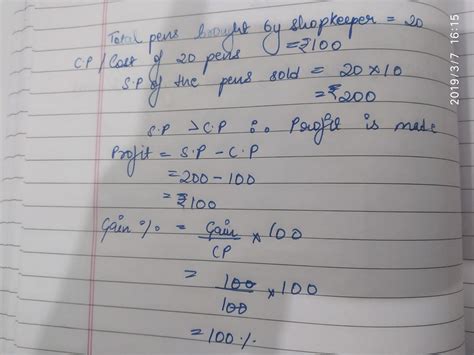 Total pens brought by shopkeeper = 20
C.P / Cost of 20 pens = ₹100
S.P of the pens sold = 20 × 10
= ₹200
S.P > C.P ∴ Profit is made
Profit = S.P - C.P
= 200 - 100
= ₹100
Gain % = Gain/CP × 100
= 100/100 × 100
= 100%
2019/3/7 16:15